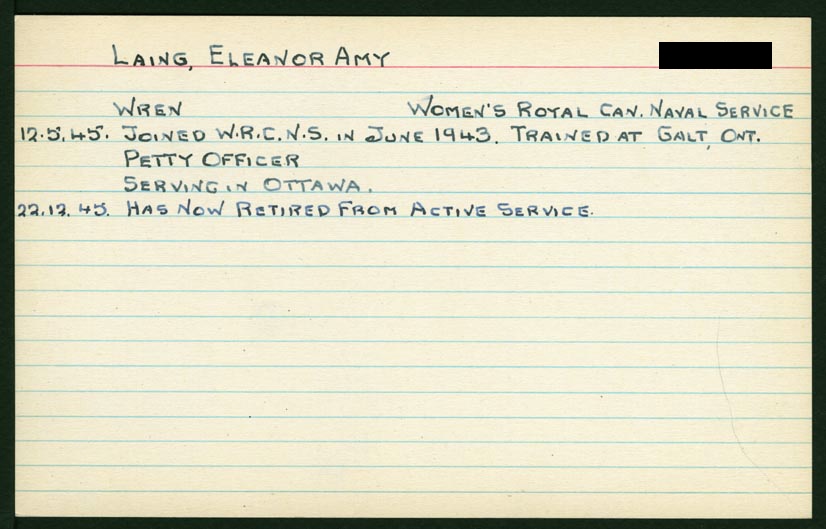 LAING, ELEANOR AMY
WREN WOMEN'S ROYAL CAN. NAVAL SERVICE
12.5.45. JOINED W.R.C.N.S. IN JUNE 1943. TRAINED AT GALT, ONT.
PETTY OFFICER
SERVING IN OTTAWA.
22.12.45. HAS NOW RETIRED FROM ACTIVE SERVICE.